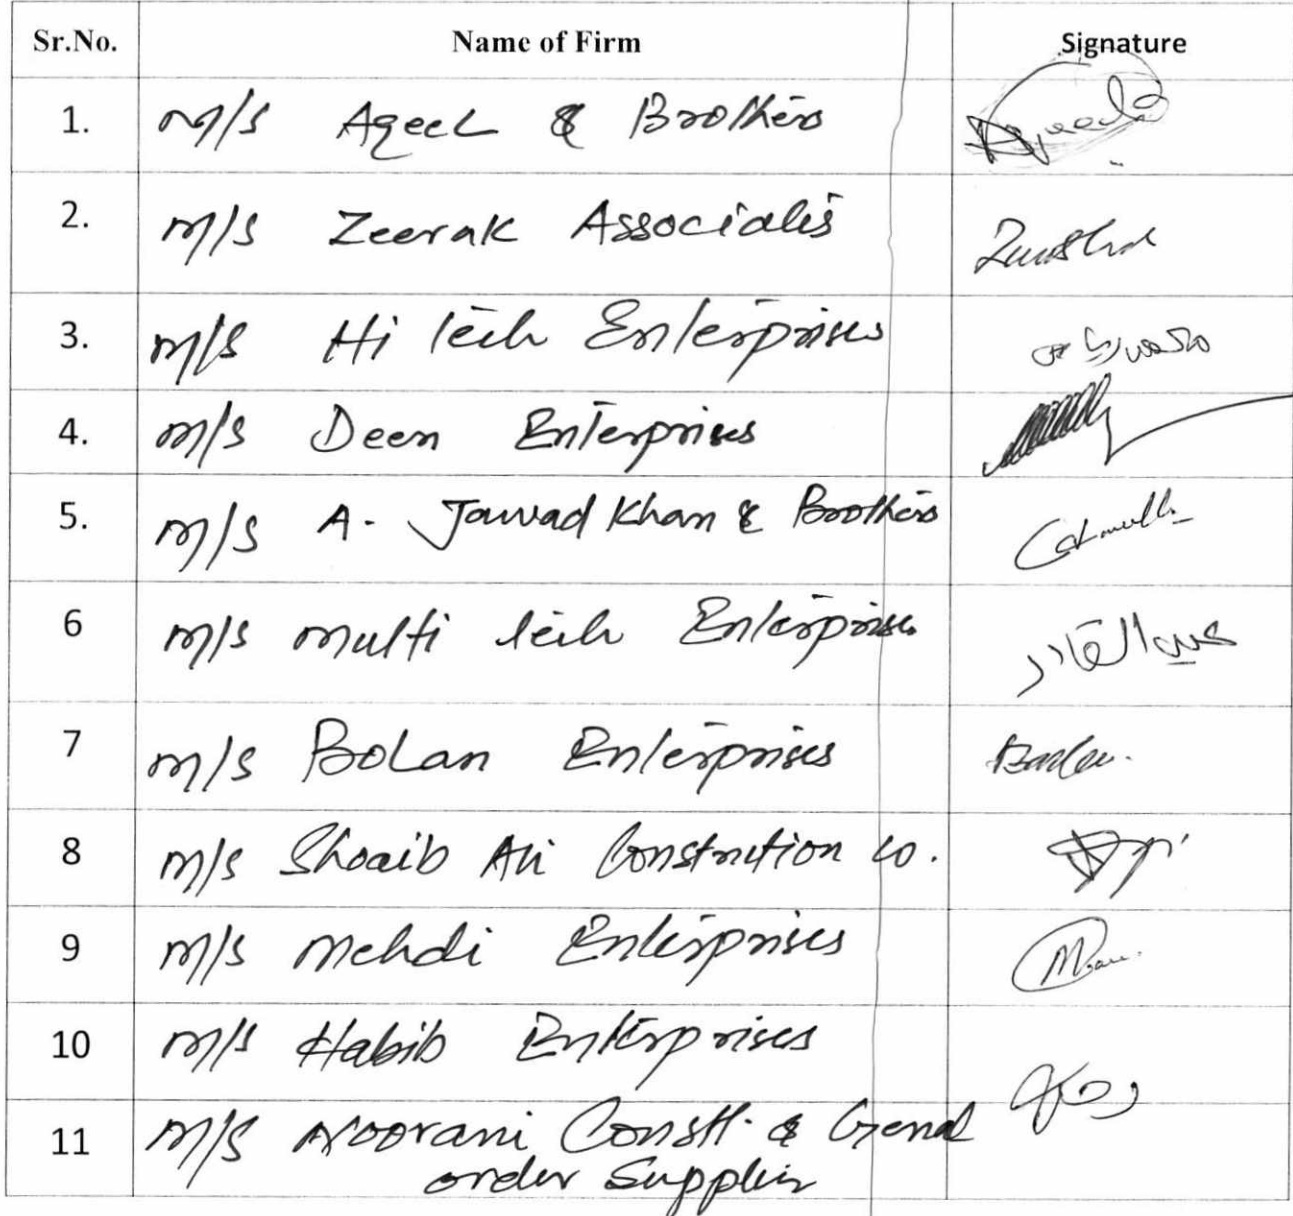 Sr.No. Name of Firm Signature
1. M/S Aqeel & Brothers
2. M/S Zeerak Associates
3. M/S Hi Tech Enterprises
4. M/S Deen Enterprises
5. M/S A. Jawad Khan & Brothers
6 M/S Multi Tech Enterprises عبدالقادر
7 M/S Bolan Enterprises
8 M/S Shoaib Ali Constrution Co.
9 M/S Mehdi Enterprises
10 M/S Habib Enterprises
11 M/S Noorani Constt. & Genral
order Supplier